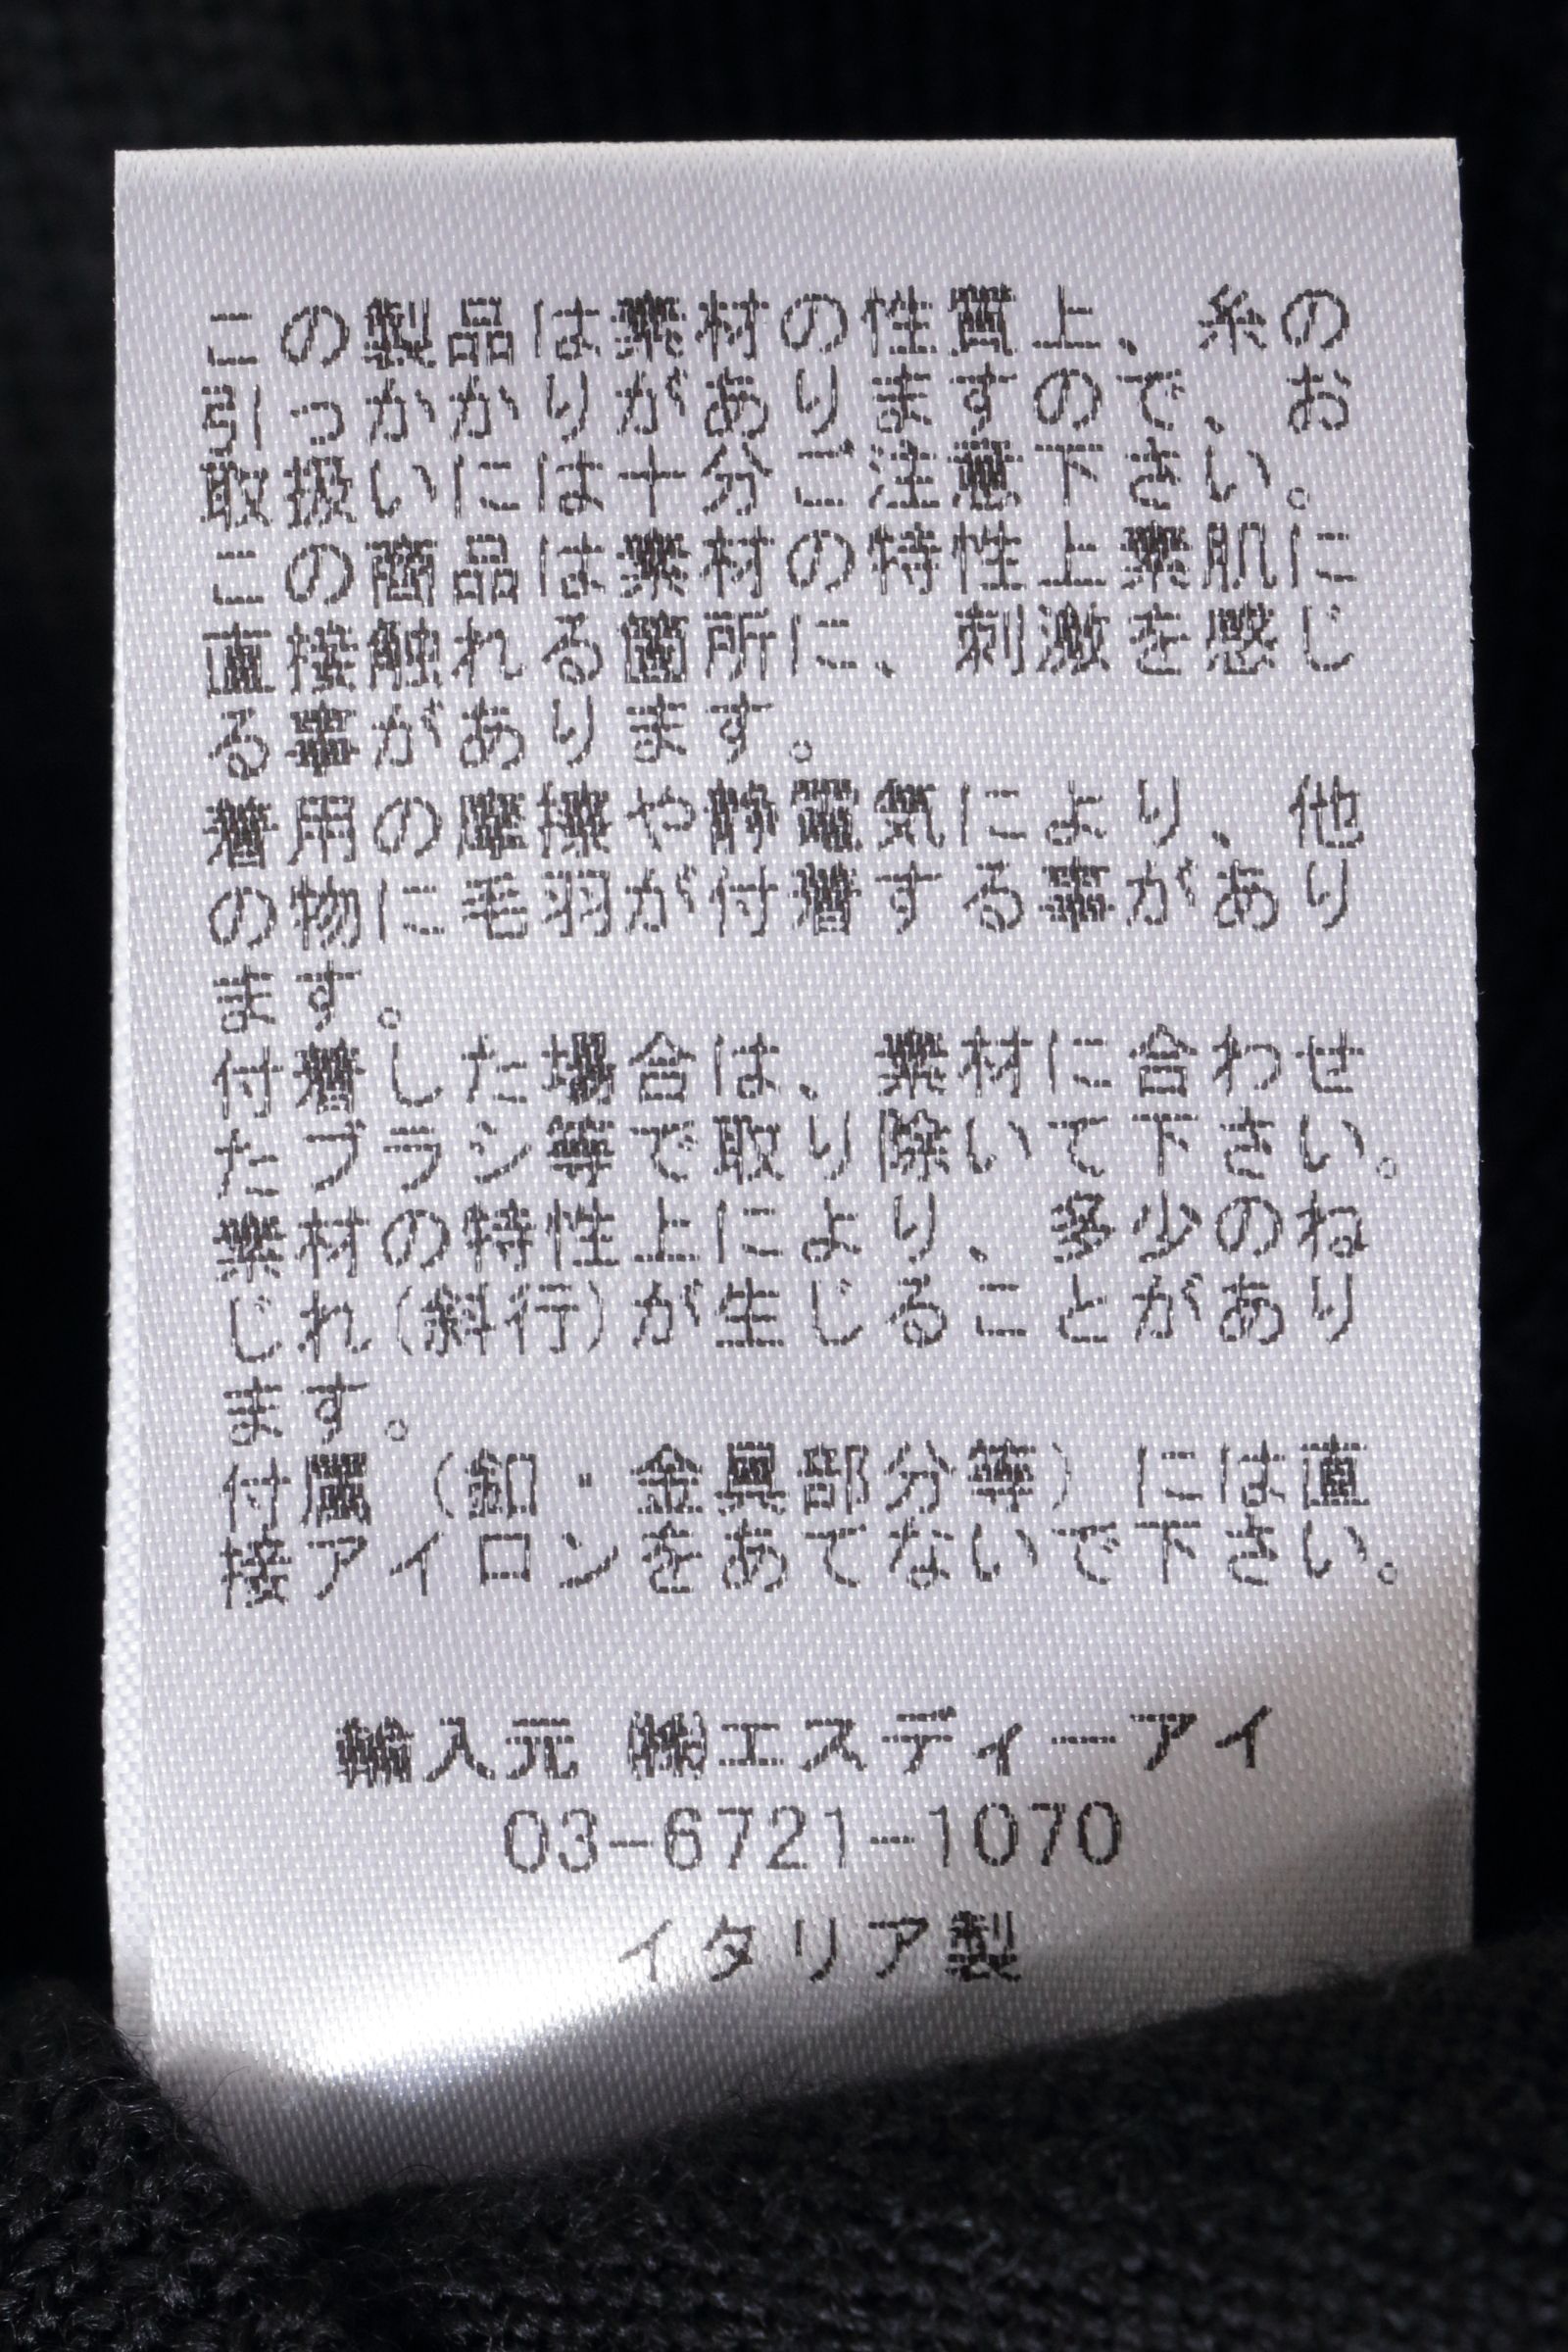 この製品は素材の性質上、糸の
引っかかりがありますので、お
取扱いには十分ご注意下さい。
この商品は素材の特性上素肌に
直接触れる箇所に、刺激を感じ
る事があります。
着用の摩擦や静電気により、他
の物に毛羽が付着する事があり
ます。
付着した場合は、素材に合わせ
たブラシ等で取り除いて下さい。
素材の特性上により、多少のね
じれ(斜行)が生じることがあり
ます。
付属（釦・金具部分等）には直
接アイロンをあてないで下さい。
輸入元 ㈱エスディーアイ
03-6721-1070
イタリア製